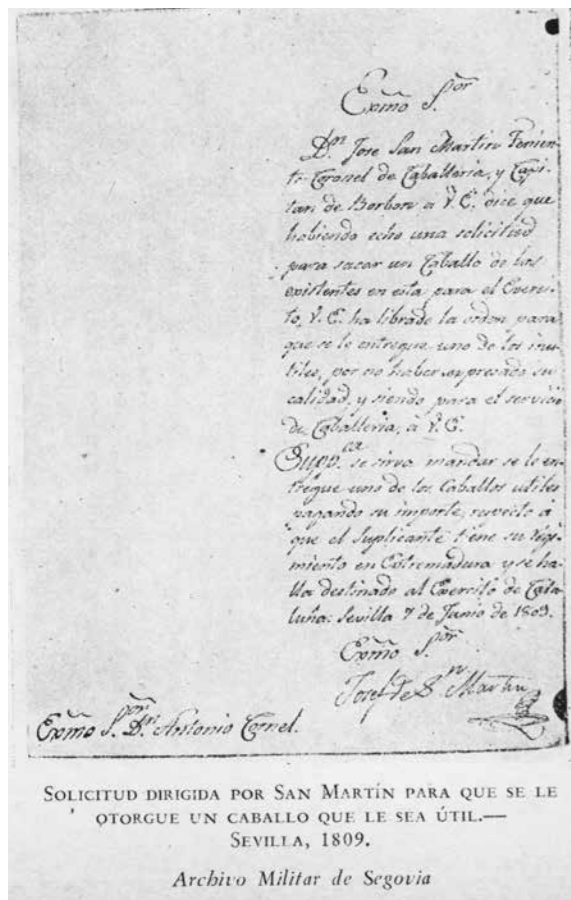 Exmo S.or
Dn Jose San Martin Tenien-
te Coronel de Caballeria, y Capi-
tan de Borbon à V.E. dice que
habiendo echo una solicitud
para sacar un Caballo de los
existentes en esta para el Exerci-
to, V.E. ha librado la orden para
que se le entregue uno de los inu-
tiles, por no haber expresado su
calidad, y siendo para el servicio
de Caballeria, à V.E.
Supp.ca se sirva mandar se le en-
tregue uno de los Caballos utiles
pagando su importe, respecto à
que el Suplicante tiene su Regi-
miento en Extremadura y se ha-
lla destinado al Exercito de Cata-
luña: Sevilla 7 de Junio de 1809.
Exmo S.or
Josef de Sn Martin
Exmo S.or Dn Antonio Cornel.
SOLICITUD DIRIGIDA POR SAN MARTÍN PARA QUE SE LE
OTORGUE UN CABALLO QUE LE SEA ÚTIL.—
SEVILLA, 1809.
Archivo Militar de Segovia